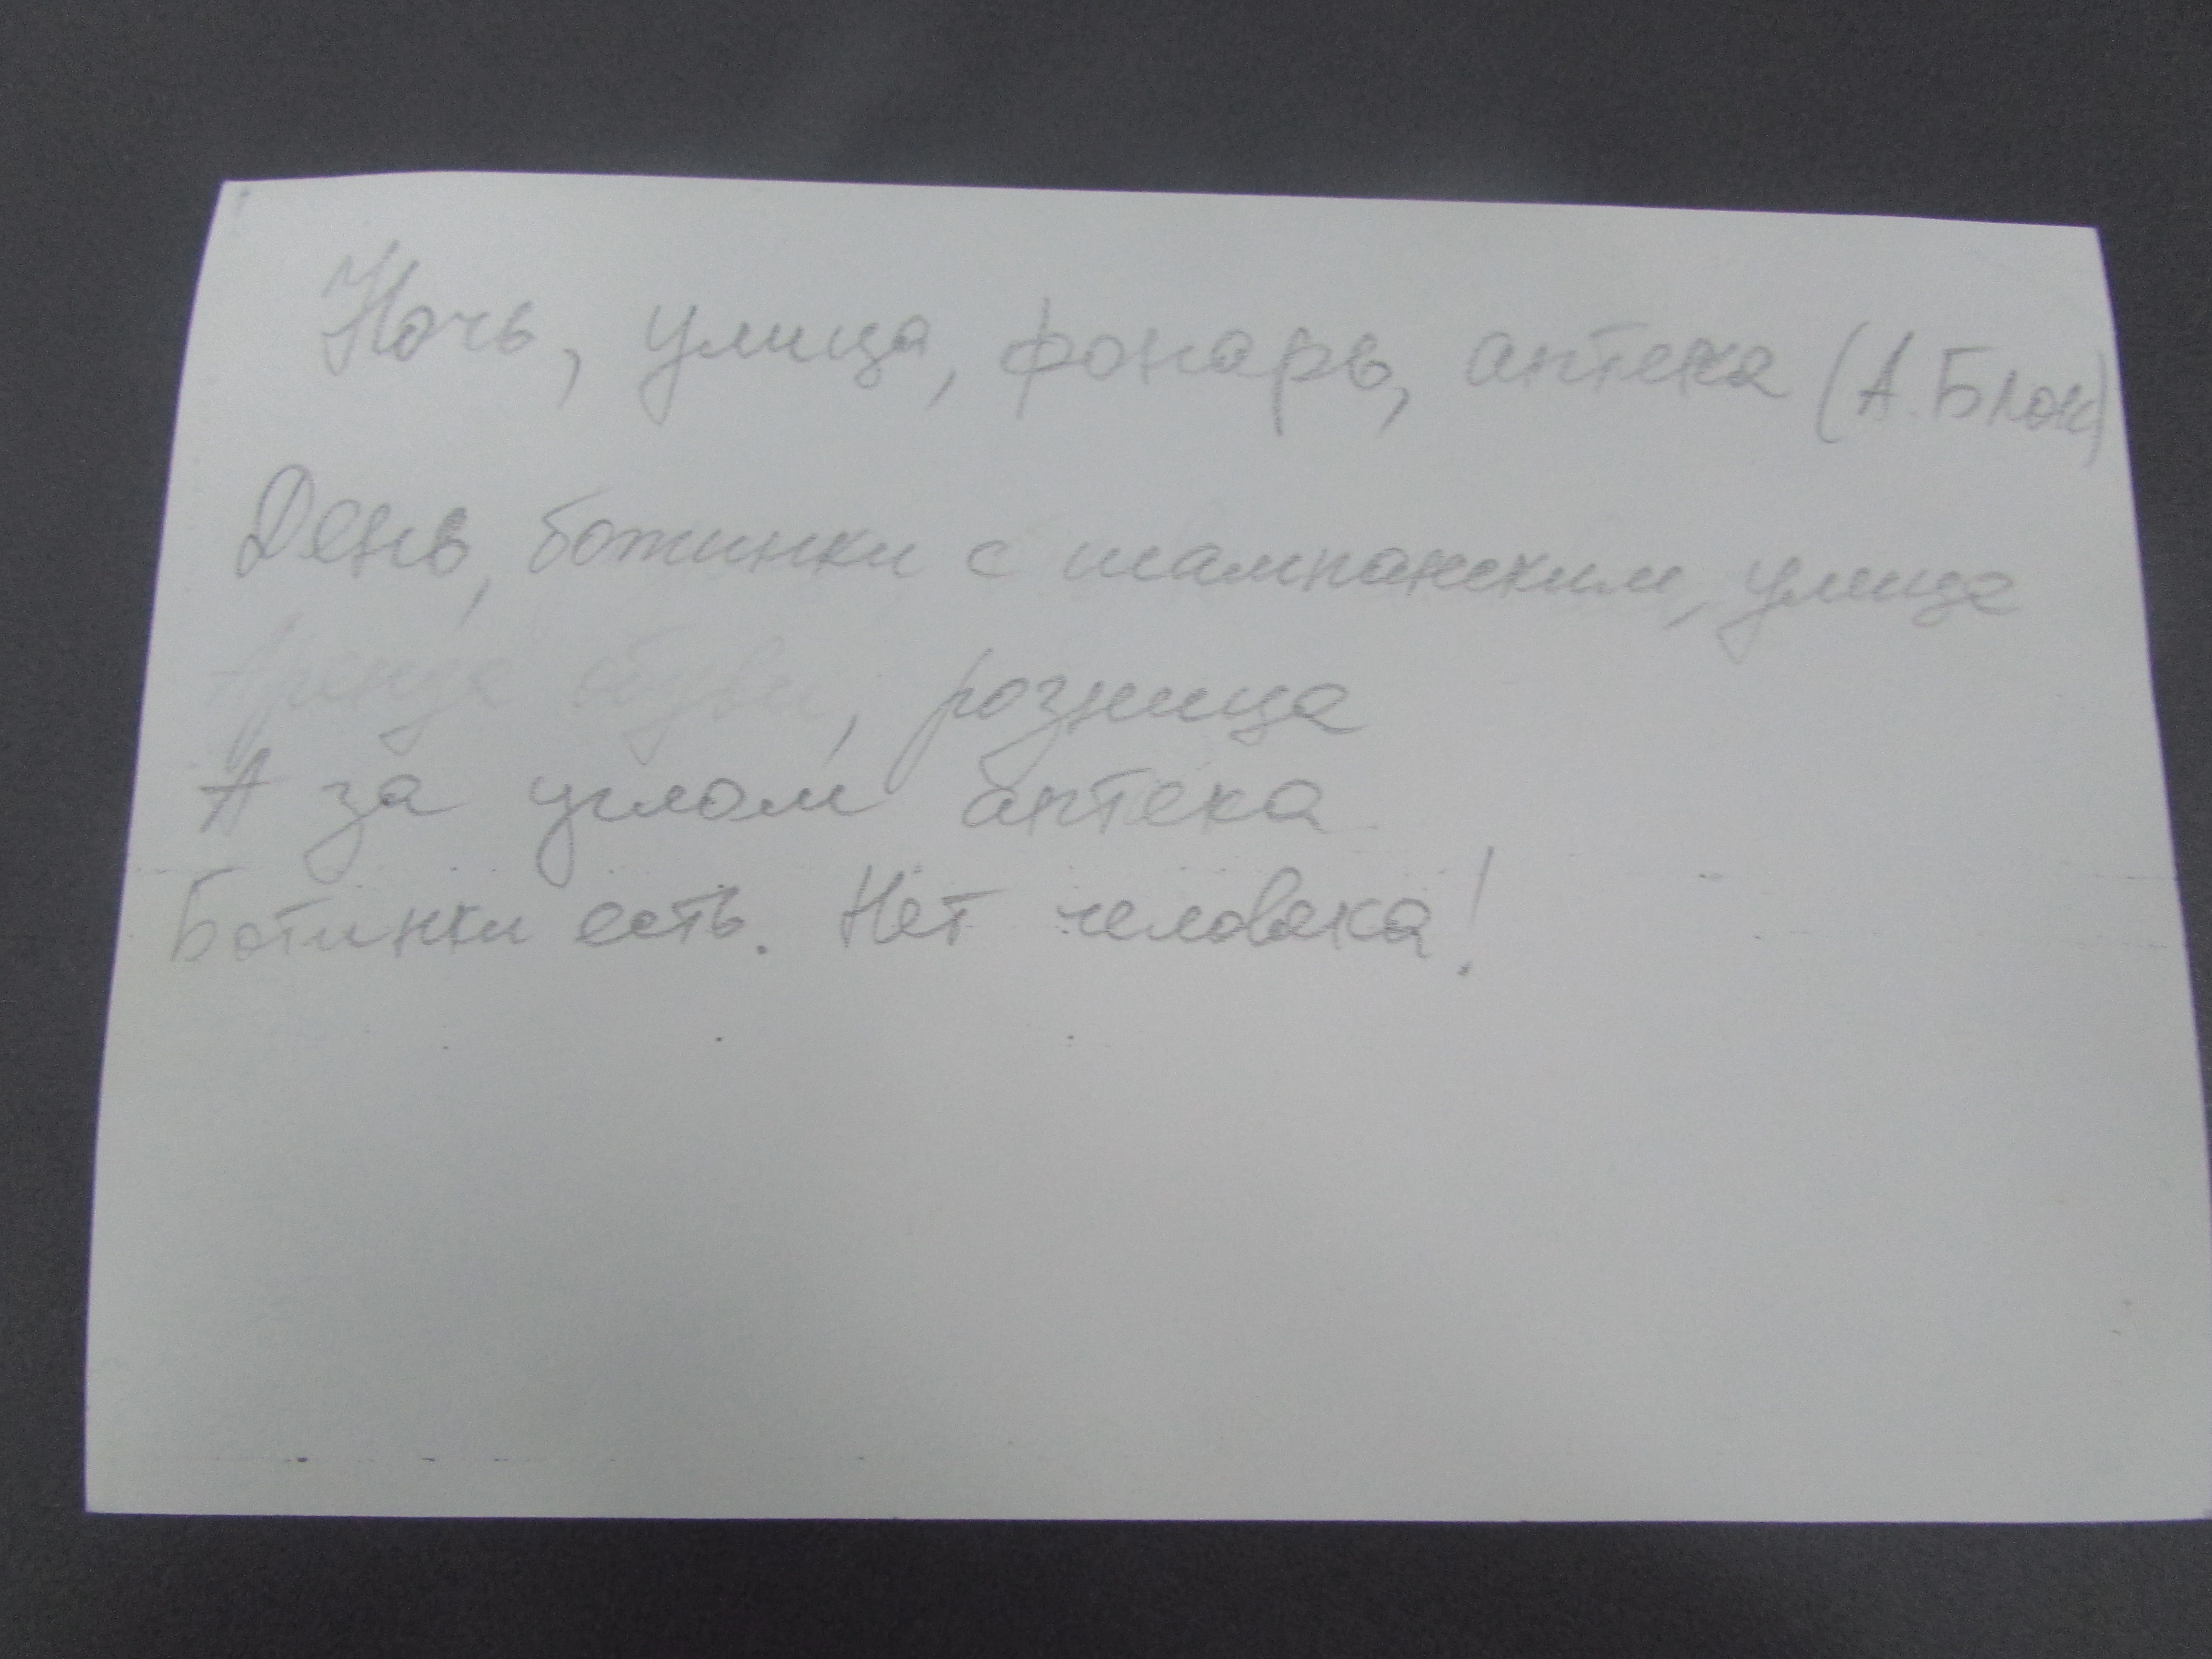 Ночь, улица, фонарь, аптека (А. Блок)
День, ботинки с шампанским, улица
Аренда обуви, розница
А за углом аптека
Ботинки есть. Нет человека!